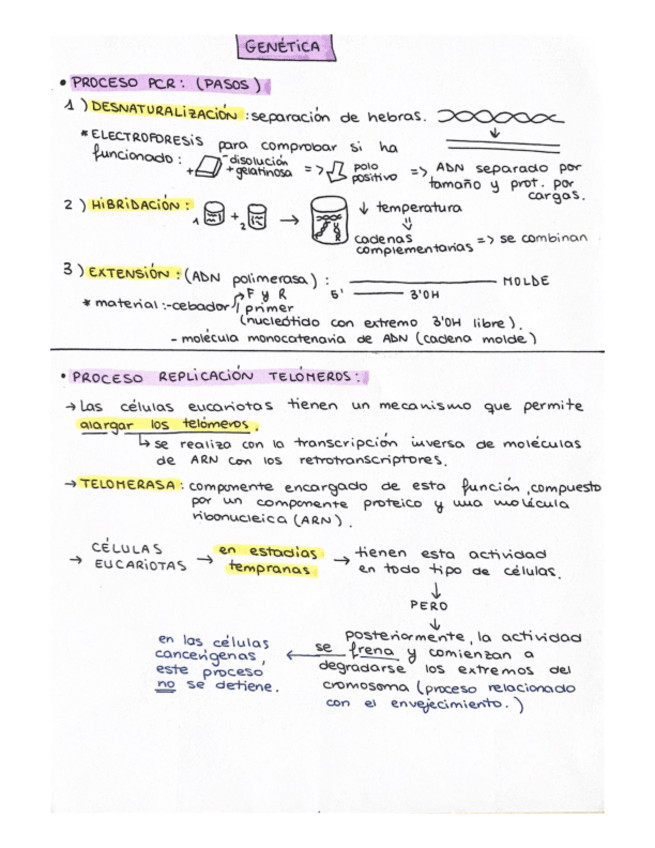 GENÉTICA
• PROCESO PCR: (PASOS)
1) DESNATURALIZACIÓN: separación de hebras.
* ELECTROFORESIS para comprobar si ha
funcionado: + - disolución + gelatinosa => polo positivo => ADN separado por
tamaño y prot. por
cargas.
2) HIBRIDACIÓN: 1 + 2 → ↓ temperatura
⇓
cadenas
complementarias => se combinan
3) EXTENSIÓN: (ADN polimerasa): MOLDE
F y R 5' 3'OH
* material: - cebador / primer
(nucleótido con extremo 3'OH libre).
- molécula monocatenaria de ADN (cadena molde)
• PROCESO REPLICACIÓN TELÓMEROS:
→ Las células eucariotas tienen un mecanismo que permite
alargar los telómeros.
↳ se realiza con la transcripción inversa de moléculas
de ARN con los retrotranscriptores.
→ TELOMERASA: componente encargado de esta función, compuesto
por un componente proteico y una molécula
ribonucleica (ARN).
→ CÉLULAS EUCARIOTAS → en estadías tempranas → tienen esta actividad
en todo tipo de células.
↓
PERO
↓
posteriormente, la actividad
se frena y comienzan a
degradarse los extremos del
cromosoma (proceso relacionado
con el envejecimiento.)
en las células
cancerígenas,
este proceso
no se detiene.